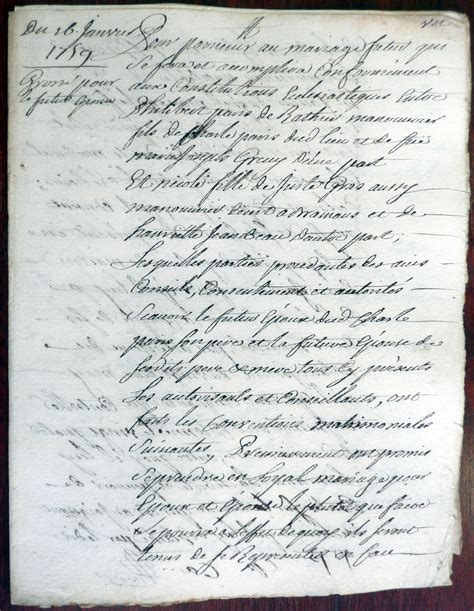 Du 16 Janvier
1759
Grossé pour
le futur Epoux
Pour parvenir au mariage futur qui
se fera et accomplira Conformement
aux Constitutions Eclesiastiques Entre
Philibert paris de manouvrier
fils de Charle paris dud lieu et de
marie D'une part
Et fille de aussy
manouvrier et de
D'autre part;
Lesquelles parties procedantes des avis
Conseils, Consentement et autorités
Scavoir le futur Epoux dud Charle
paris son pere et la future Epouse de
sesdits pere et mere tous icy présents
Les autorisants et Conseillants, ont
fait les Conventions matrimoniales
Suivantes, Premierement ont promis
Se prendre en Loyal mariage pour
Epoux et Epouse le plutot que faire
se pourra a l'effet de quoy ils seront
tenus de se Représenter en face